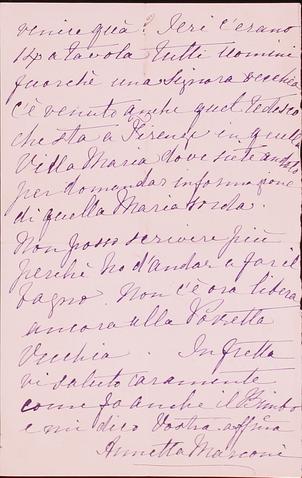 venire quà? Ieri c'erano
14 a tavola tutti uomini
fuorchè una Signora vecchia
c'è venuto anche quel tedesco
che sta a Firenze in quella
Villa Maria dove siete andato
per domandar informazione
di quella Maria sorda.
Non posso scrivere più
perchè ho d'andar a far il
bagno. Non c'è ora libera
ancora alla Porretta
Vecchia. In fretta
vi saluto caramente
come fa anche il Bimbo
e mi dico Vostra affma
Annetta Marconi